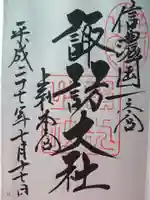 信濃国一之宮
諏訪大社
上社本宮
平成二十七年十月十七日